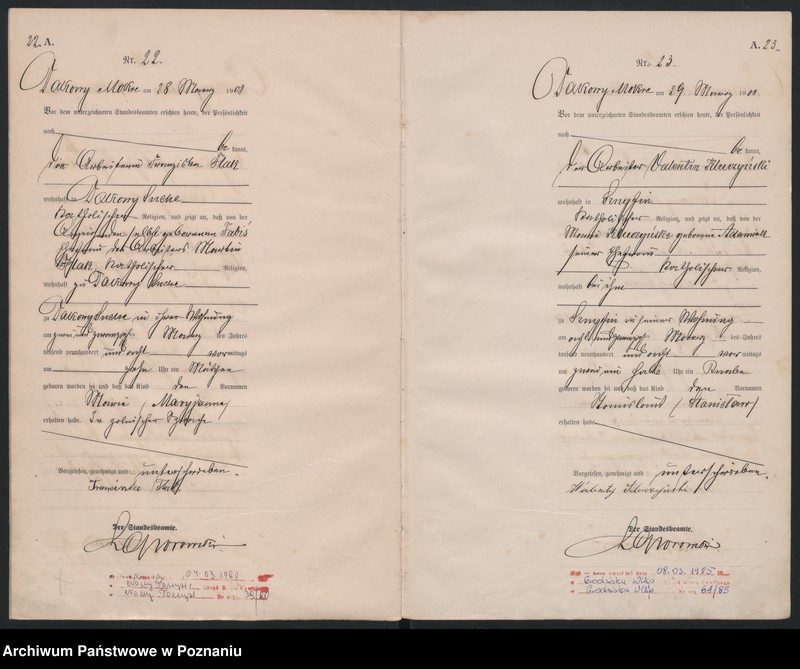 22. A.
Nr. 22.
Dakowy Mokre am 28 Maerz 1908
Vor dem unterzeichneten Standesbeamten erschien heute, der Persönlichkeit
nach
be kannt,
die Arbeiterin Franziska Flak
wohnhaft in Dakowy Suche
katholischer Religion, und zeigt an, daß von der
geborenen
Ehefrau des Arbeiters Martin
Flak, katholischer Religion,
wohnhaft zu Dakowy Suche
zu Dakowy Suche in ihrer Wohnung
am zwanzigsten Maerz des Jahres
tausend neunhundert und acht vormittags
um zehn Uhr ein Mädchen
geboren worden sei und daß das Kind den Vornamen
Maria (Maryanna)
erhalten habe. In polnischer Sprache
Vorgelesen, genehmigt und unterschrieben.
Der Standesbeamte.
04.03.1980
Nowy Tomyśl
A. 23.
Nr. 23.
Dakowy Mokre am 29 Maerz 1908
Vor dem unterzeichneten Standesbeamten erschien heute, der Persönlichkeit
nach
be kannt,
der Arbeiter Valentin
wohnhaft in
katholischer Religion, und zeigt an, daß von der
Maria geborene Adamczak
seiner Ehefrau
katholischer Religion,
wohnhaft bei ihm
zu in seiner Wohnung
am acht und zwanzigsten Maerz des Jahres
tausend neunhundert und acht vormittags
um zwei ein halb Uhr ein Knabe
geboren worden sei und daß das Kind den Vornamen
Stanislaus (Stanisław)
erhalten habe.
Vorgelesen, genehmigt und unterschrieben.
Der Standesbeamte.
08.03.1985
Grodzisku Wlkp
Grodzisku Wlkp 61/85
Archiwum Państwowe w Poznaniu